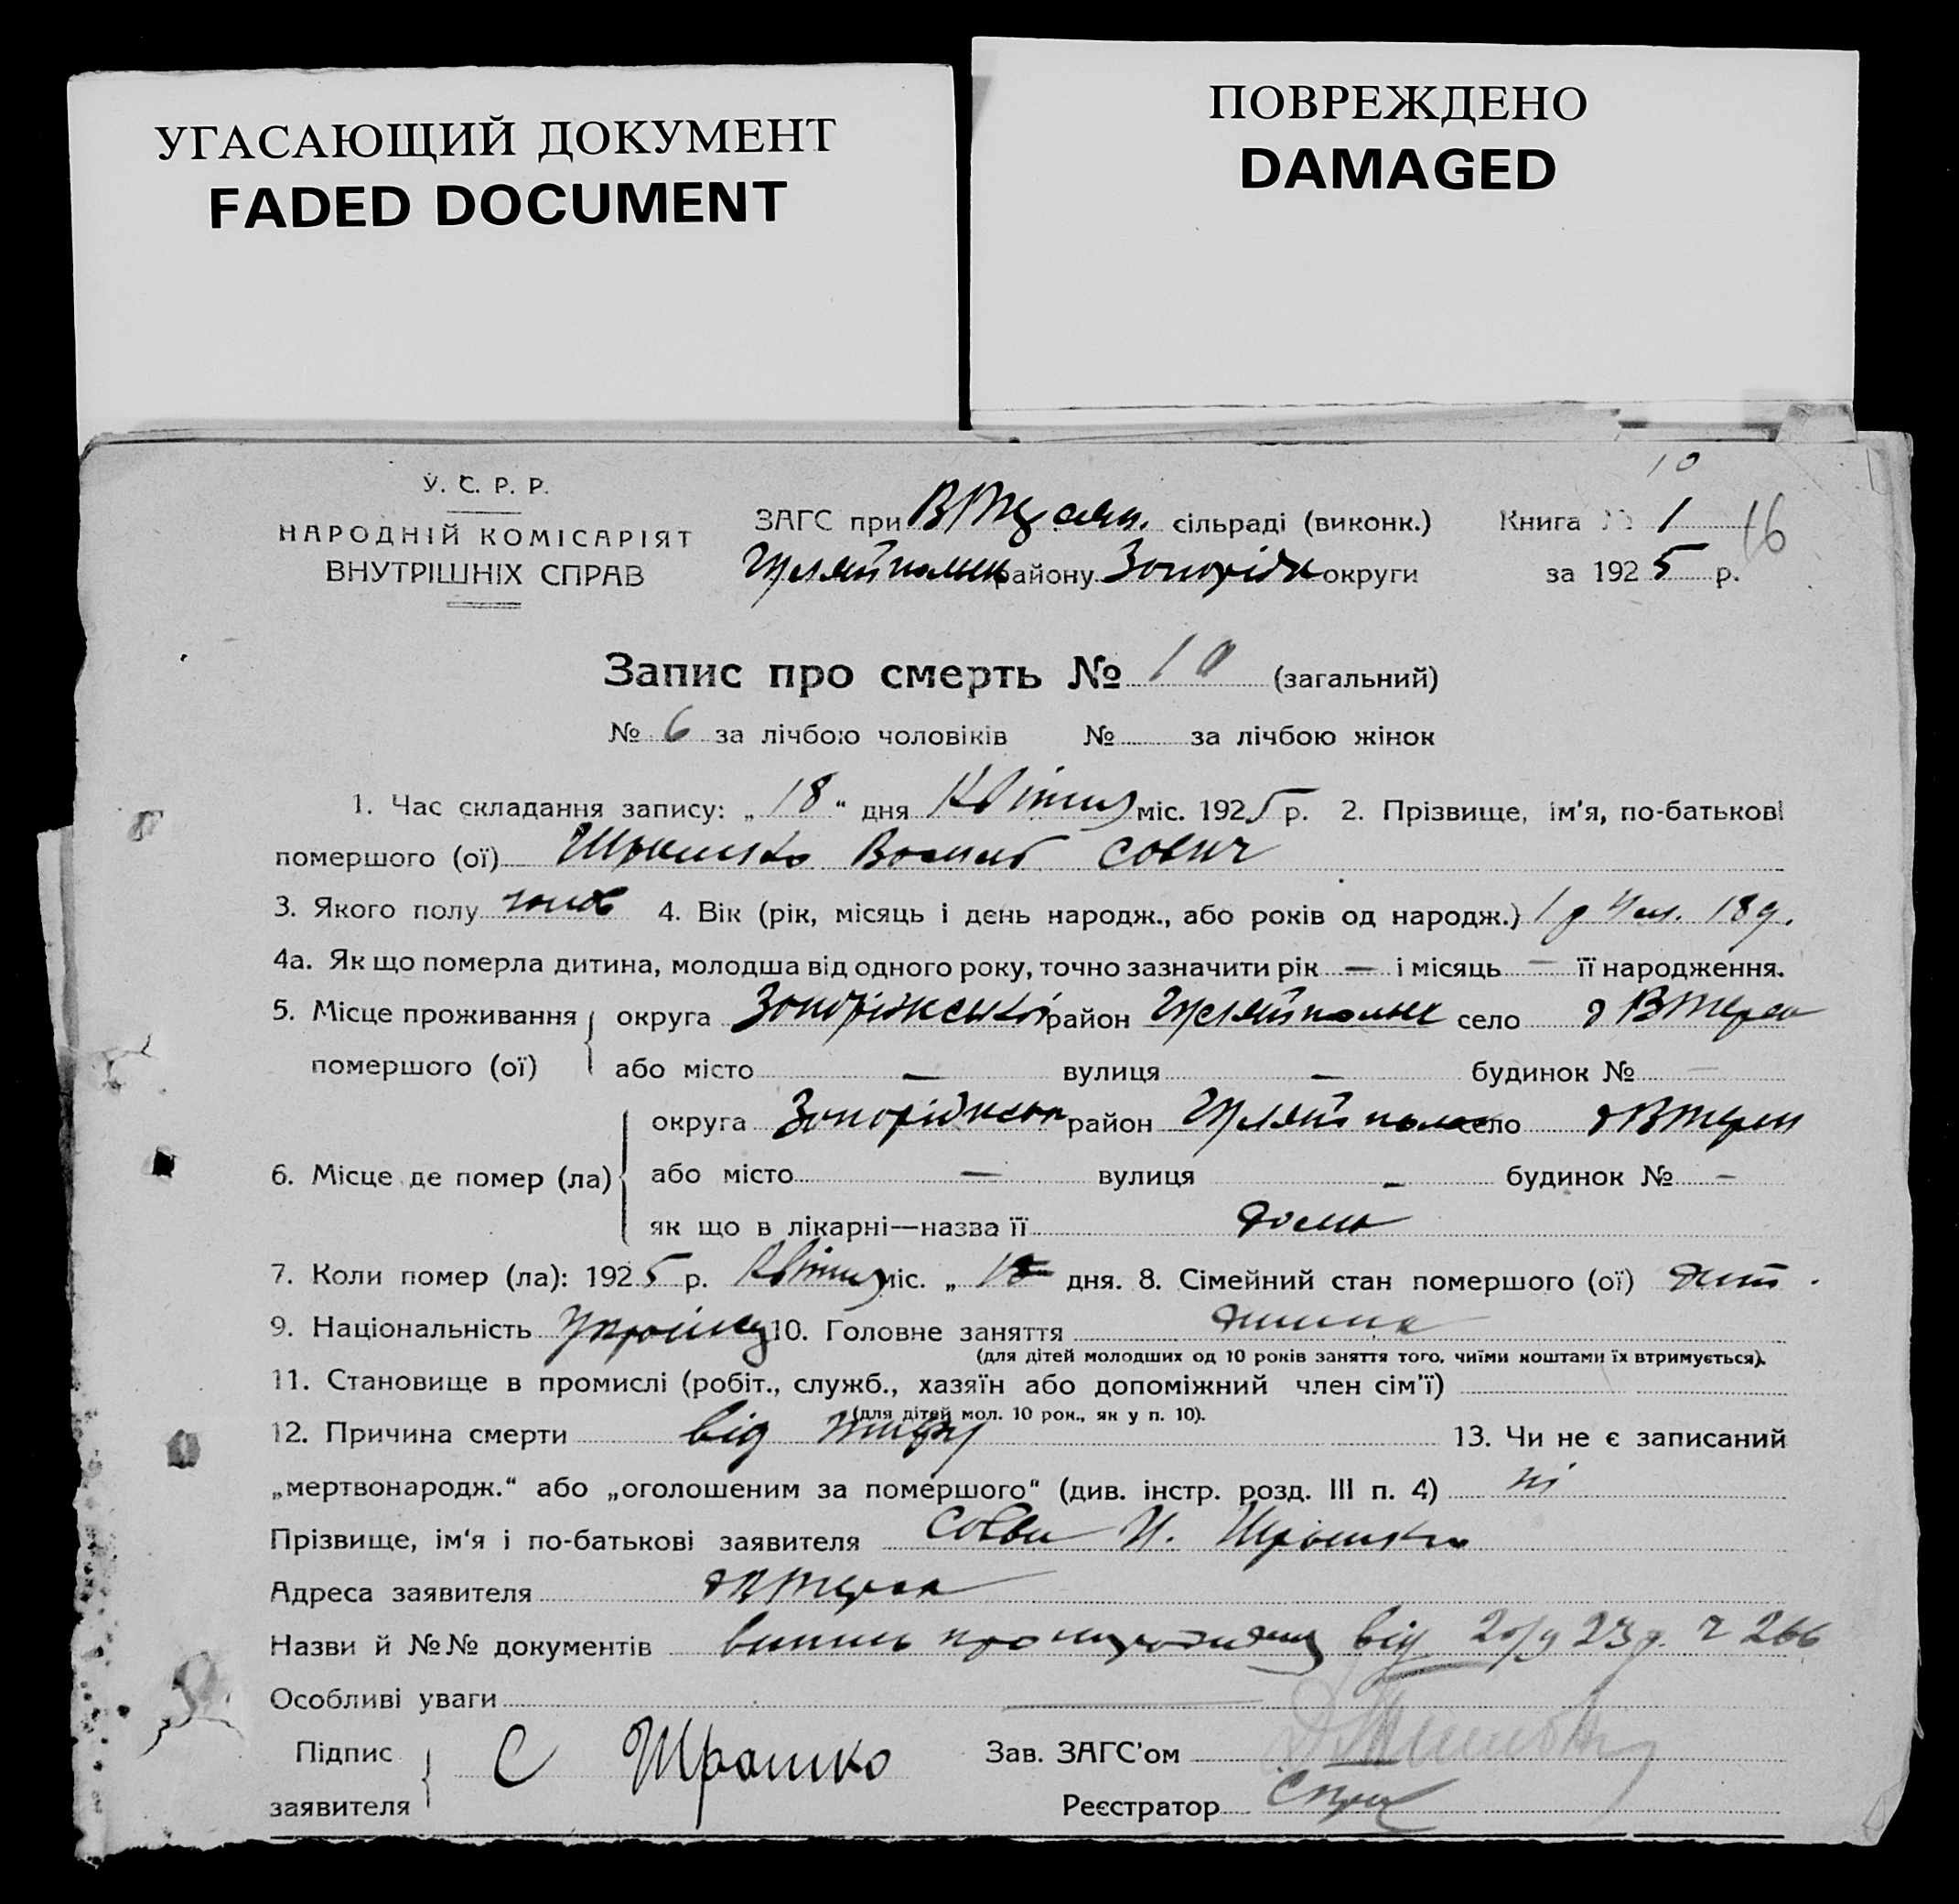 УГАСАЮЩИЙ ДОКУМЕНТ
FADED DOCUMENT
ПОВРЕЖДЕНО
DAMAGED
У. С. Р. Р.
НАРОДНІЙ КОМІСАРІЯТ
ВНУТРІШНІХ СПРАВ
ЗАГС при сільраді (виконк.)
району округи
10
Книга № 1 16
за 1925 р.
Запис про смерть № 10 (загальний)
№ 6 за лічбою чоловіків № за лічбою жінок
1. Час складання запису: „18“ дня Квітня міс. 1925 р. 2. Прізвище, ім'я, по-батькові
помершого (ої) Трашко
3. Якого полу чолов 4. Вік (рік, місяць і день народж., або років од народж.) 1 р 4 м. 18 д.
4а. Як що померла дитина, молодша від одного року, точно зазначити рік — і місяць — її народження.
5. Місце проживання помершого (ої) округа район Гуляйпольс село
або місто — вулиця — будинок № —
6. Місце де помер (ла) округа район Гуляйполь село
або місто — вулиця — будинок № —
як що в лікарні—назва її дома
7. Коли помер (ла): 1925 р. Квітня міс. „18 дня. 8. Сімейний стан помершого (ої) дит.
9. Національність Україн 10. Головне заняття дитина
(для дітей молодших од 10 років заняття того, чиїми коштами їх втримується).
11. Становище в промислі (робіт., служб., хазяїн або допоміжний член сім'ї)
(для дітей мол. 10 рок., як у п. 10).
12. Причина смерти від тифу 13. Чи не є записаний
„мертвонародж.“ або „оголошеним за помершого“ (див. інстр. розд. III п. 4) ні
Прізвище, ім'я і по-батькові заявителя Савва Трашко
Адреса заявителя
Назви й №№ документів від 23 р. ч 266
Особливі уваги
Підпис заявителя С Трашко
Зав. ЗАГС'ом
Реєстратор